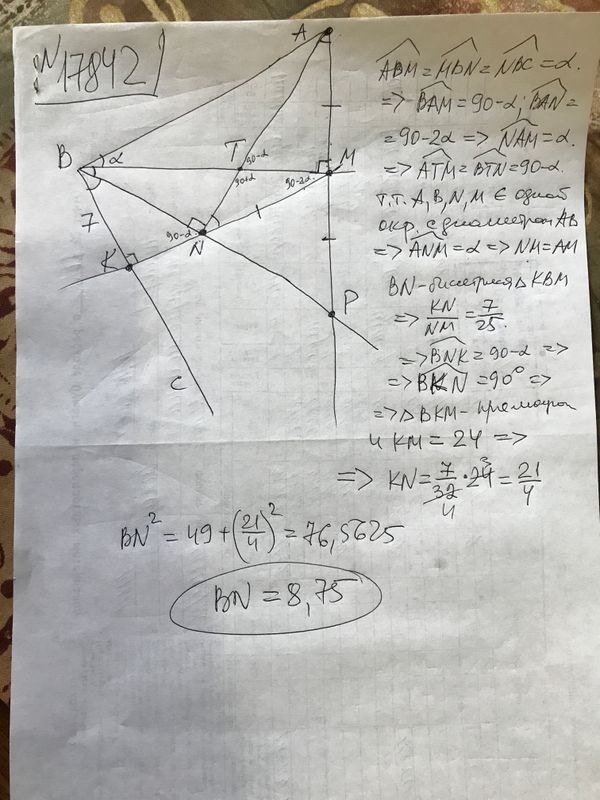 N17842
A
B
α
T
90-α
90+α
90-2α
M
7
90-α
N
K
P
C
ABM = MBN = NBC = α.
=> BAM = 90-α; BAN =
= 90-2α => NAM = α.
=> ATM = BTN = 90-α.
т.т. A, B, N, M ∈ одной
окр. с диаметром AB
=> ANM = α => NM = AM
BN - биссектриса Δ KBM
=> KN/NM = 7/25.
=> BNK = 90-α =>
=> BKN = 90° =>
=> Δ BKM - прямоуг
и KM = 24 =>
=> KN = 7/32 · 24 = 21/4
4
3
BN² = 49 + (21/4)² = 76,5625
BN = 8,75